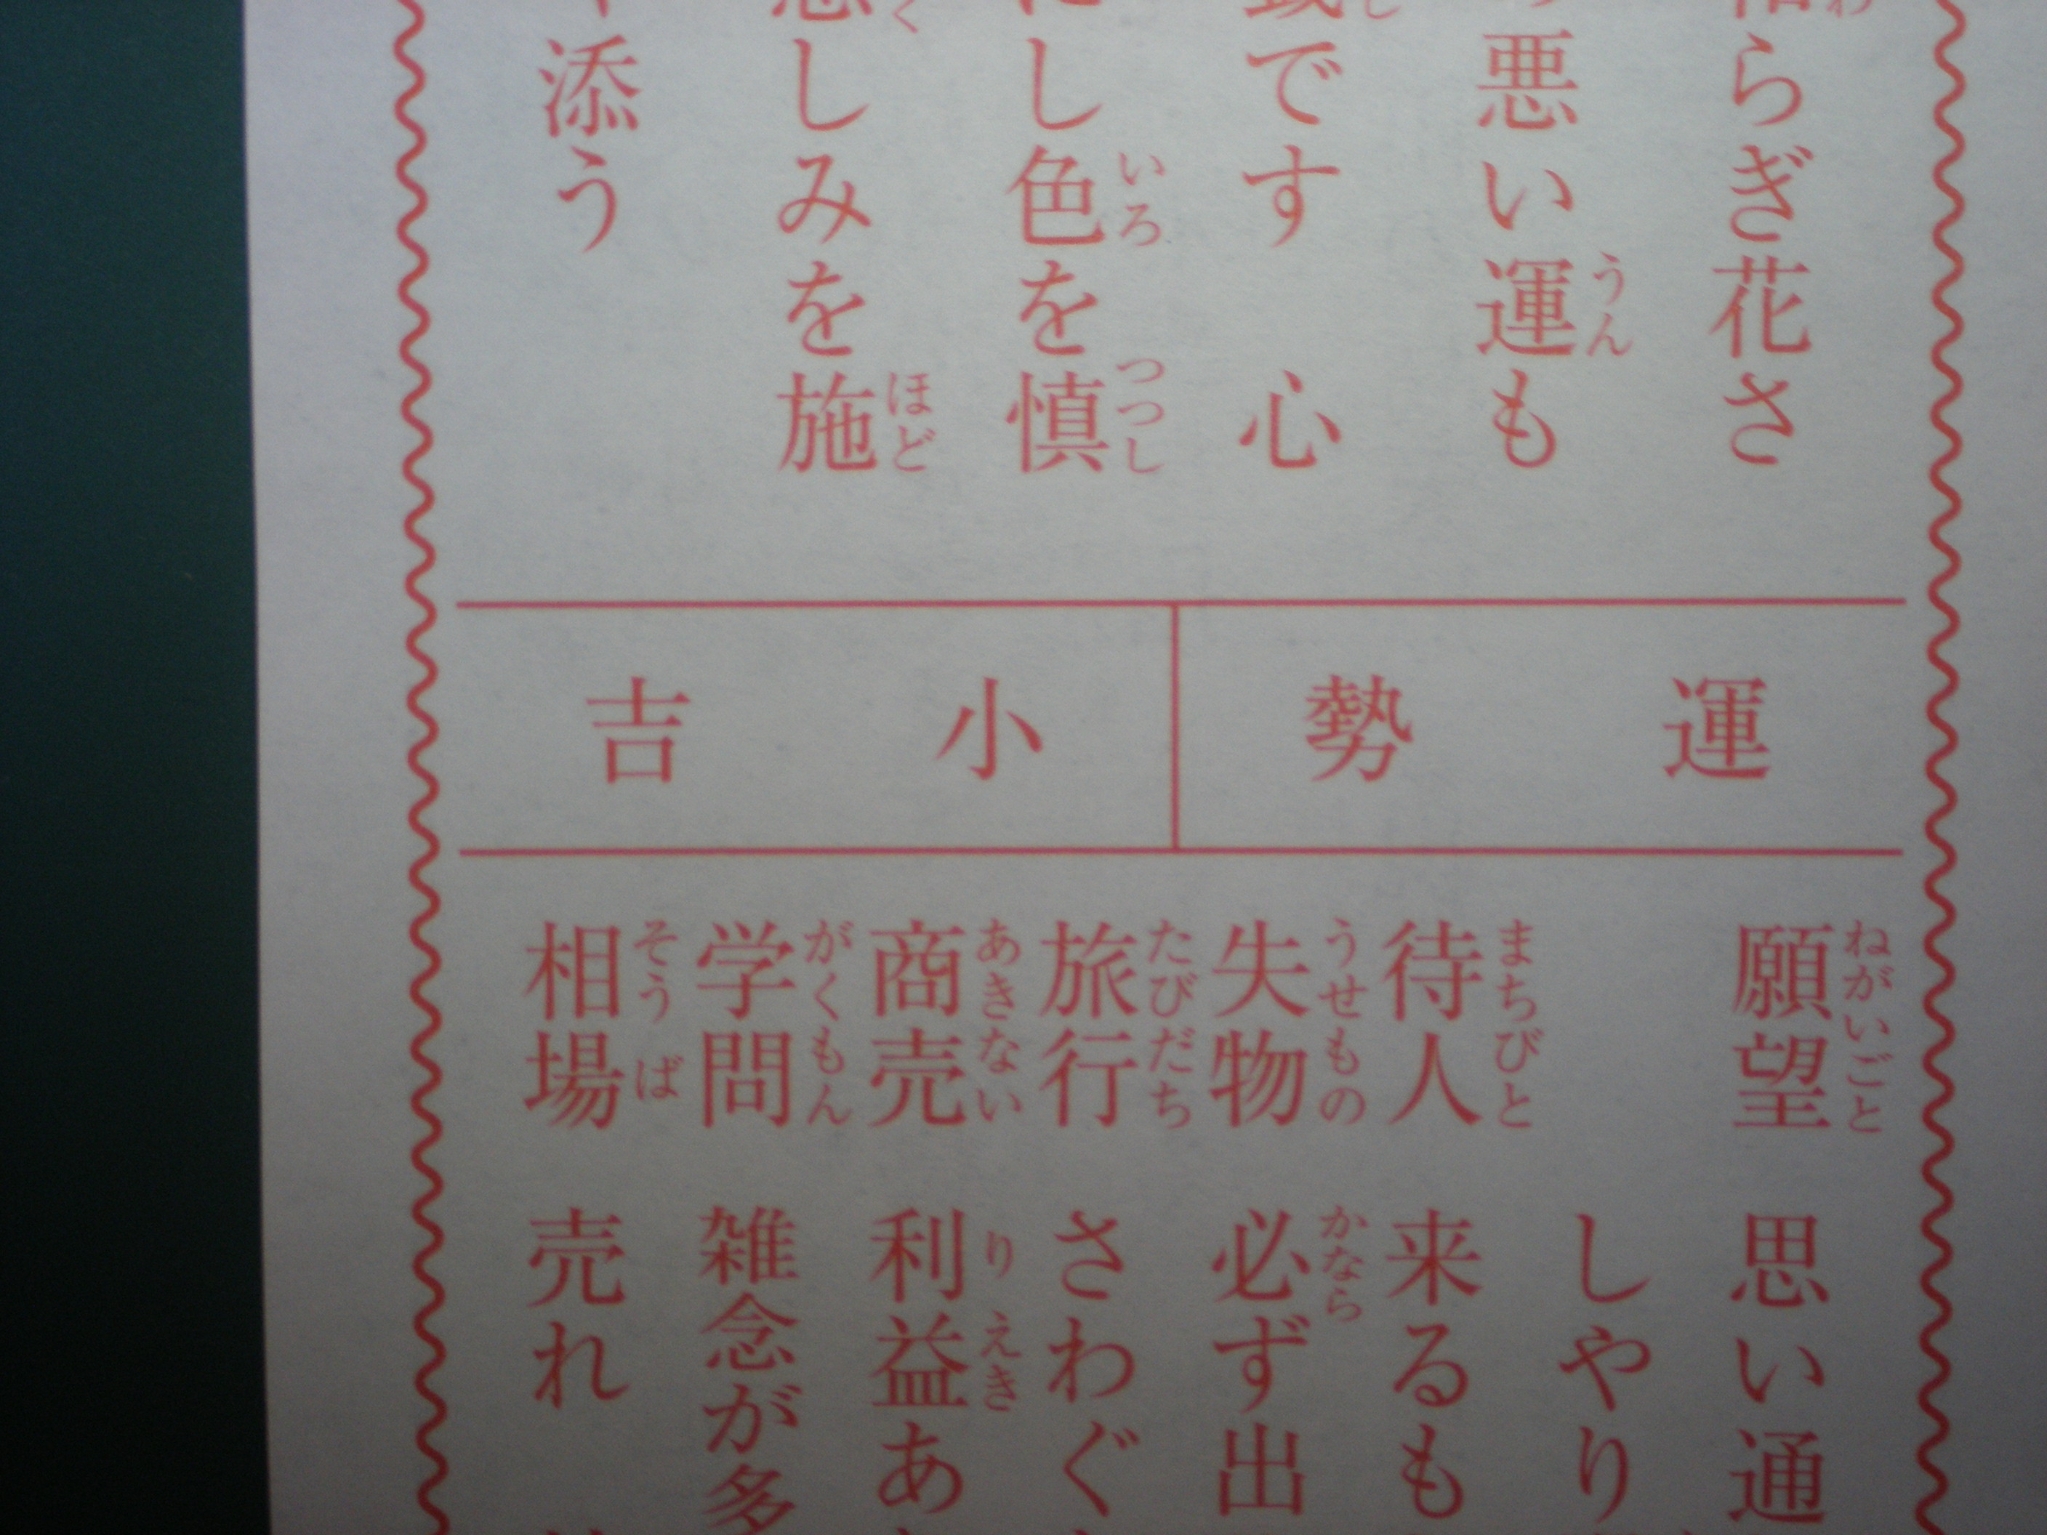 らぎ花さ
悪い運も
です 心
し色を慎
しみを施
添う
運勢
小吉
願望 思い通
しやり
待人 来るも
失物 必ず出
旅行 さわぐ
商売 利益あ
学問 雑念が多
相場 売れ